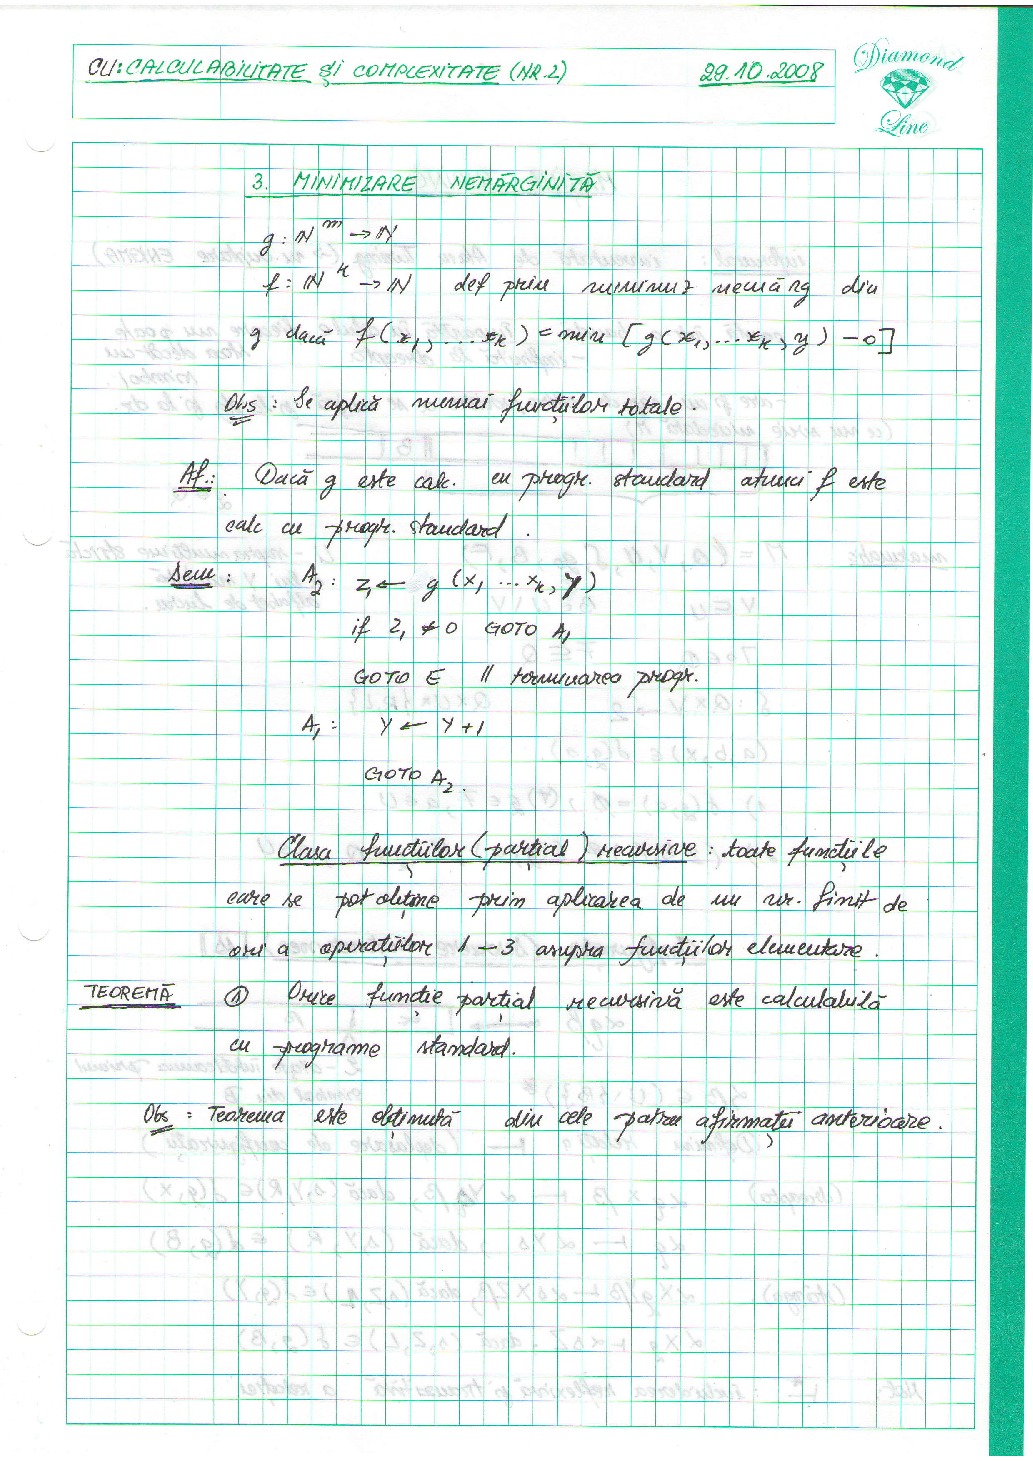 CU: CALCULABILITATE și COMPLEXITATE (NR.2) 29.10.2008
Diamond Line
3. MINIMIZARE NEMĂRGINITĂ
g: ℕ^m → ℕ
f: ℕ^k → ℕ def prin minimiz nemărg din
g dacă f(x₁, ... x_k) = min [g(x₁, ... x_k, y) - 0]
Obs: Se aplică numai funcțiilor totale.
Af.: Dacă g este calc. cu progr. standard atunci f este
calc cu progr. standard.
Dem: A₂: Z₁ ← g(x₁ ... x_k, y)
if Z₁ ≠ 0 GOTO A₁
GOTO E // terminarea progr.
A₁: Y ← Y+1
GOTO A₂.
Clasa funcțiilor (parțial) recursive: toate funcțiile
care se pot obține prin aplicarea de un nr. finit de
ori a operațiilor 1-3 asupra funcțiilor elementare.
TEOREMĂ ① Orice funcție parțial recursivă este calculabilă
cu programe standard.
Obs: Teorema este obținută din cele patru afirmații anterioare.